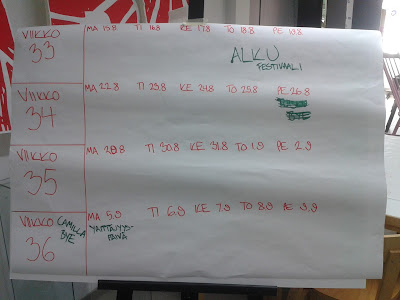 VIIKKO 33 MA 15.8 TI 16.8 KE 17.8 TO 18.8 PE 19.8
ALKU
FESTIVAALI
VIIKKO 34 MA 22.8 TI 23.8 KE 24.8 TO 25.8 PE 26.8
BYE
VIIKKO 35 MA 29.8 TI 30.8 KE 31.8 TO 1.9 PE 2.9
VIIKKO 36 MA 5.9 TI 6.9 KE 7.9 TO 8.9 PE 9.9
CAMILLA
BYE
YRITTÄJYYS-
PÄIVÄ